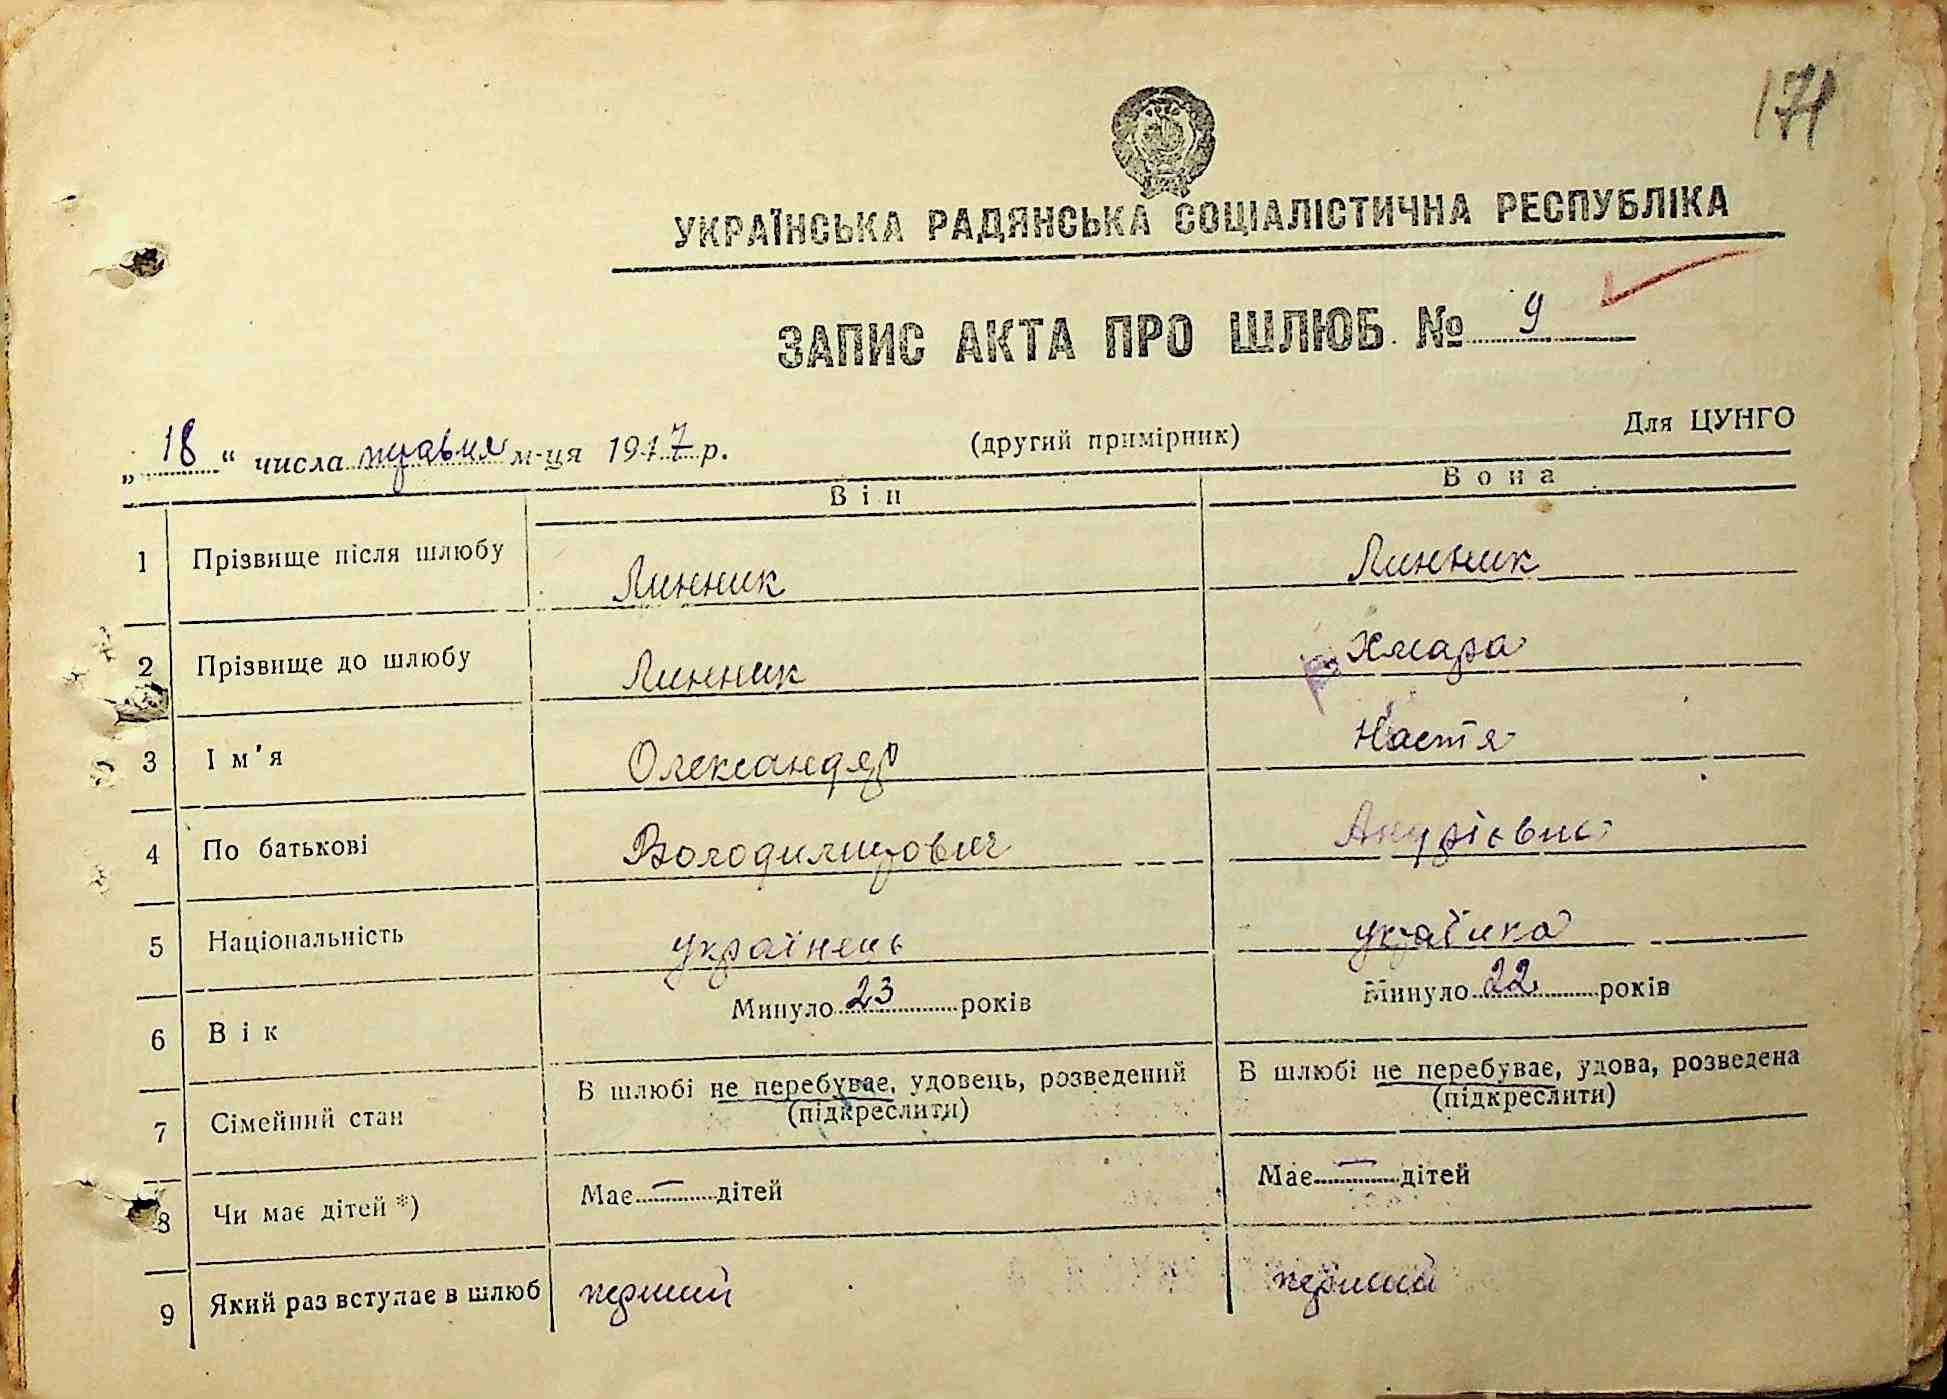 171
УКРАЇНСЬКА РАДЯНСЬКА СОЦІАЛІСТИЧНА РЕСПУБЛІКА
ЗАПИС АКТА ПРО ШЛЮБ № 9
„18“ числа травня м-ця 1947 р. (другий примірник) Для ЦУНГО
Він Вона
1 Прізвище після шлюбу Линник Линник
2 Прізвище до шлюбу Линник Хмара
3 Ім'я Олександр Настя
4 По батькові Володимирович Андріївна
5 Національність українець українка
6 Вік Минуло 23 років Минуло 22 років
7 Сімейний стан В шлюбі не перебуває, удовець, розведений (підкреслити) В шлюбі не перебуває, удова, розведена (підкреслити)
8 Чи має дітей *) Має — дітей Має — дітей
9 Який раз вступає в шлюб перший перший